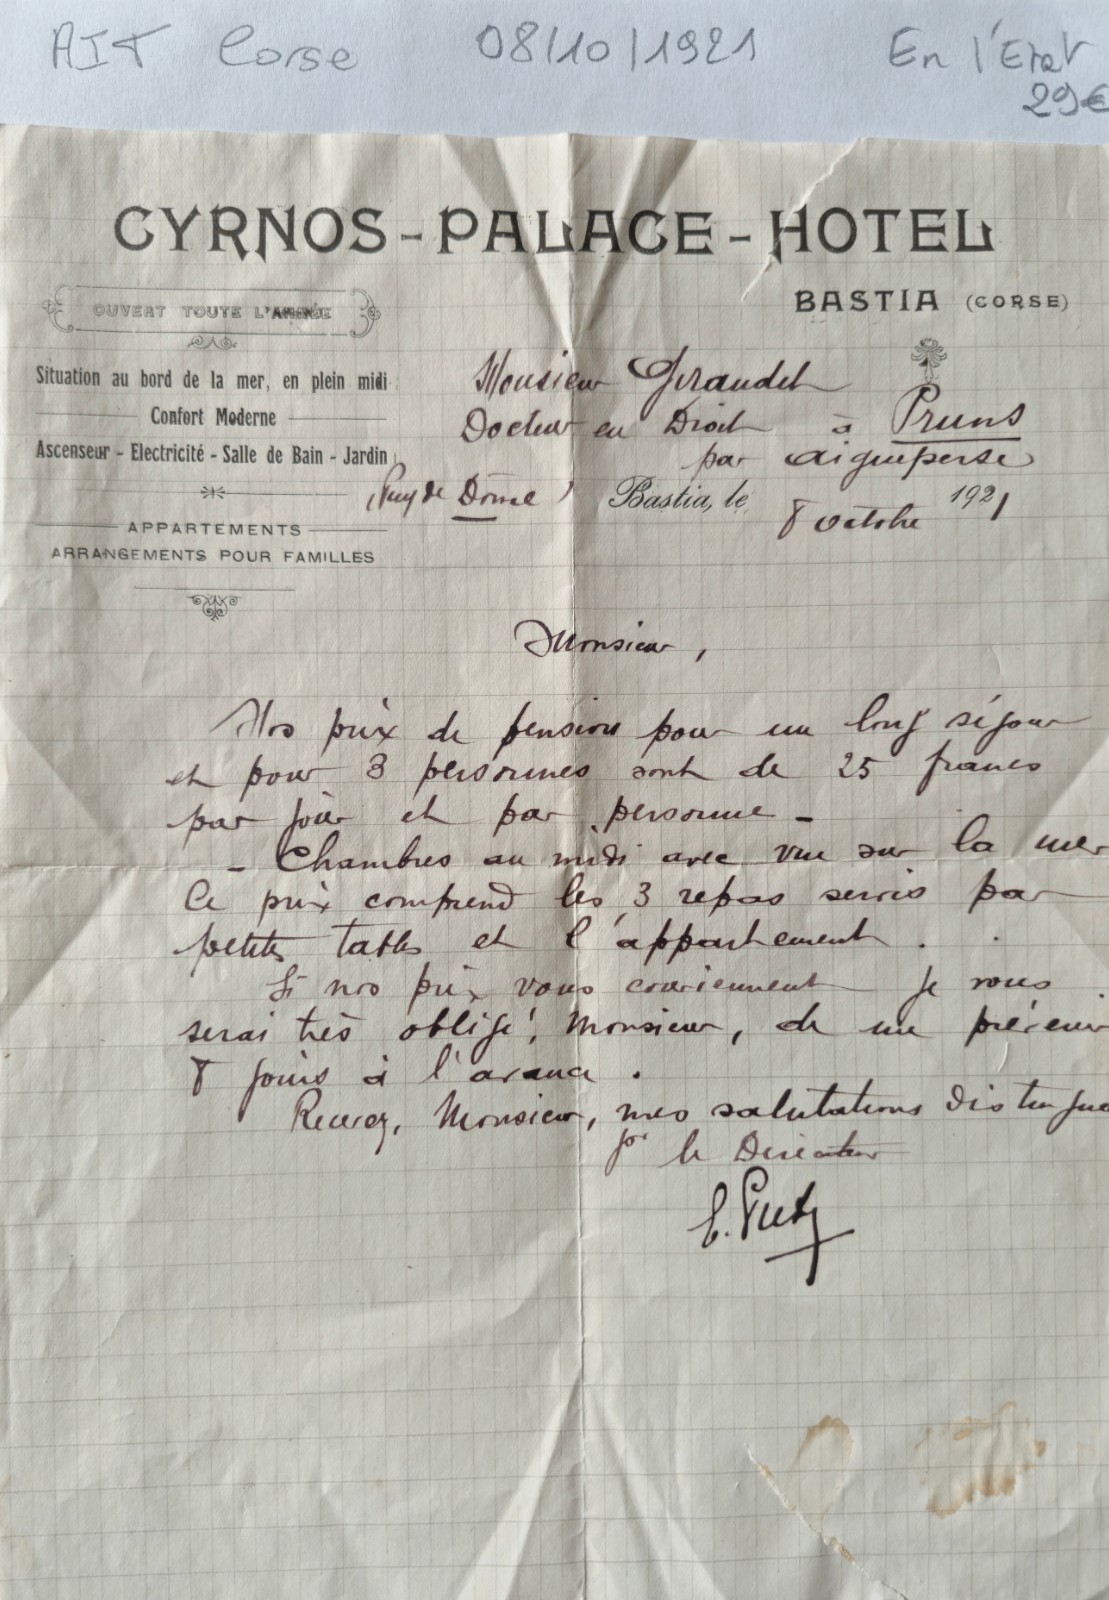 AIT Corse 08/10/1921 En l'Etat
29€
CYRNOS-PALACE-HOTEL
BASTIA (CORSE)
OUVERT TOUTE L'ANNÉE
Situation au bord de la mer, en plein midi
Confort Moderne
Ascenseur - Electricité - Salle de Bain - Jardin
APPARTEMENTS
ARRANGEMENTS POUR FAMILLES
Monsieur Geraudet
Docteur en Droit à Pruns
par Aigueperse
(Puy de Dôme)
Bastia, le 8 octobre 1921
Monsieur,
Nos prix de pension pour un long séjour
et pour 3 personnes sont de 25 francs
par jour et par personne -
- Chambres au midi avec vue sur la mer
Ce prix comprend les 3 repas servis par
petites tables et l'appartement.
Si nos prix vous conviennent je vous
serai très obligé, Monsieur, de me prévenir
8 jours à l'avance.
Recevez, Monsieur, mes salutations distingué
pr le Directeur